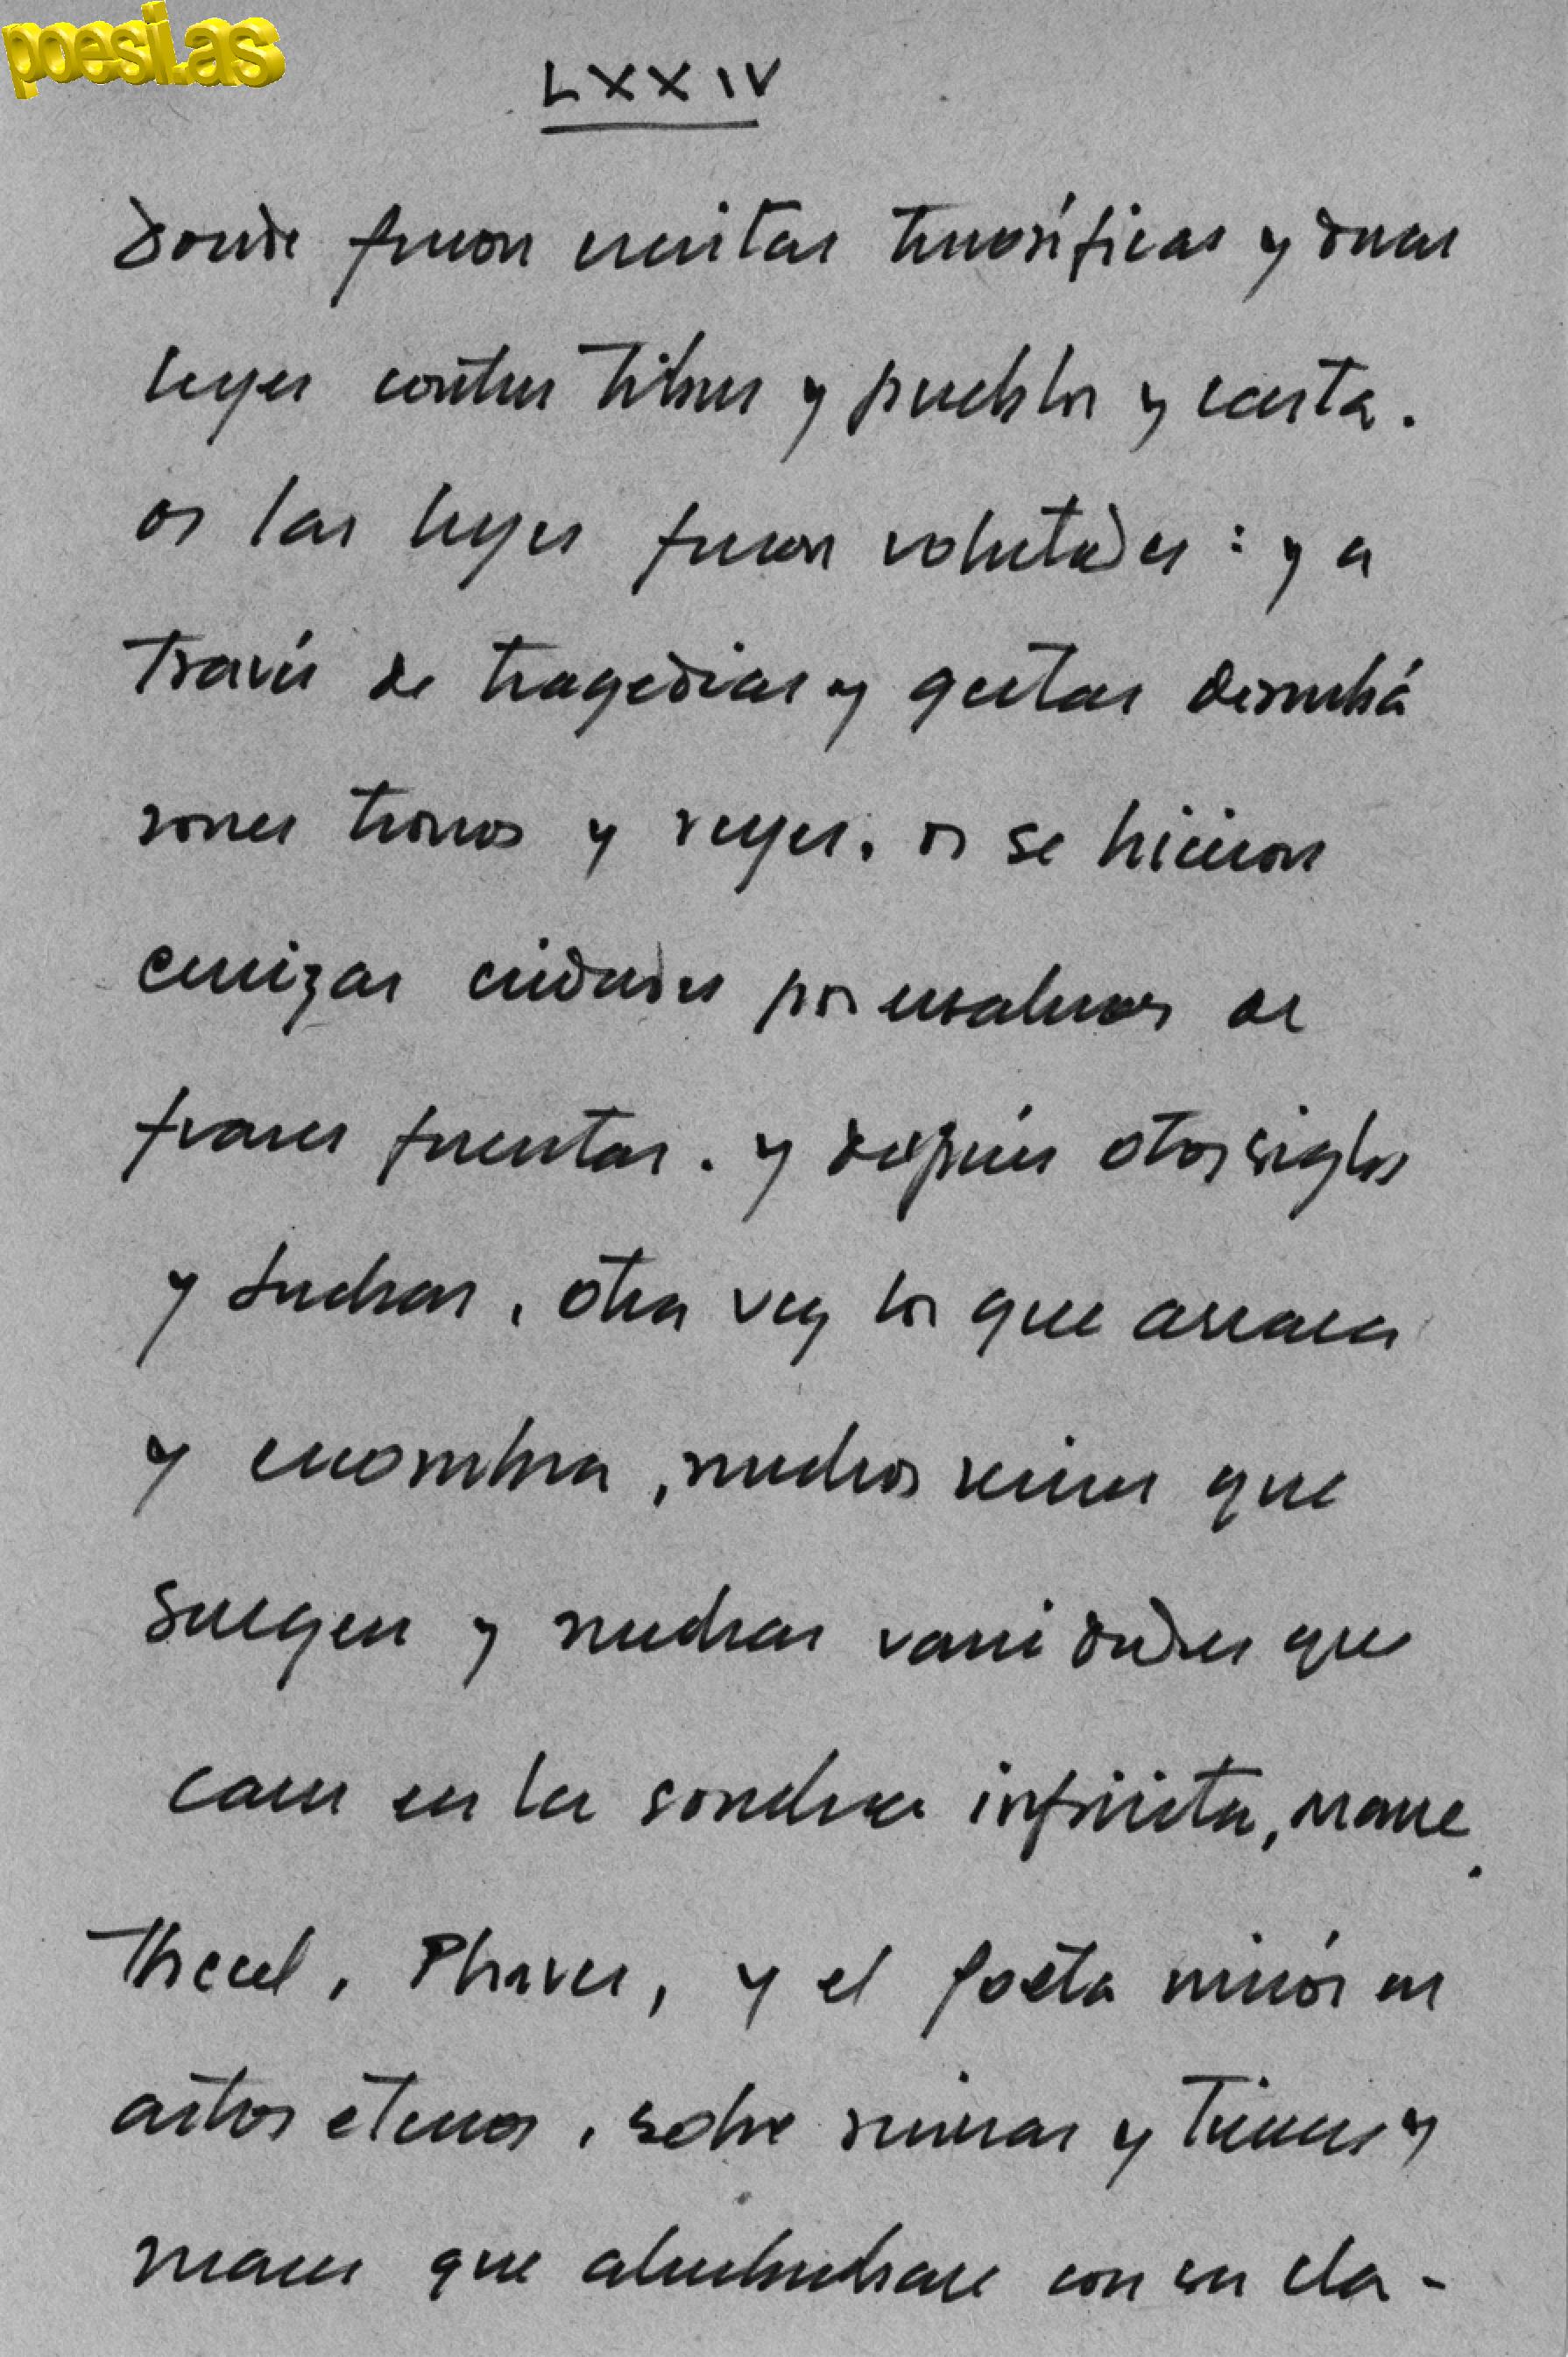 poesi.as
LXXIV
donde fueron escritas y duras
leyes contra tribus y pueblos y casta.
las leyes fueron : y a
través de tragedias y gestas derrumbá
ronse tronos y reyes. se hicieron
cenizas ciudades por de
frases funestas. y después otros siglos
y luchas, otra vez los que
y, muchos reinos que
surgen y muchas vanidades que
caen en la sombra infinita, mane,
Thecel, Phares, y el poeta miró en
astros eternos, sobre ruinas y y
mares que con su cla-